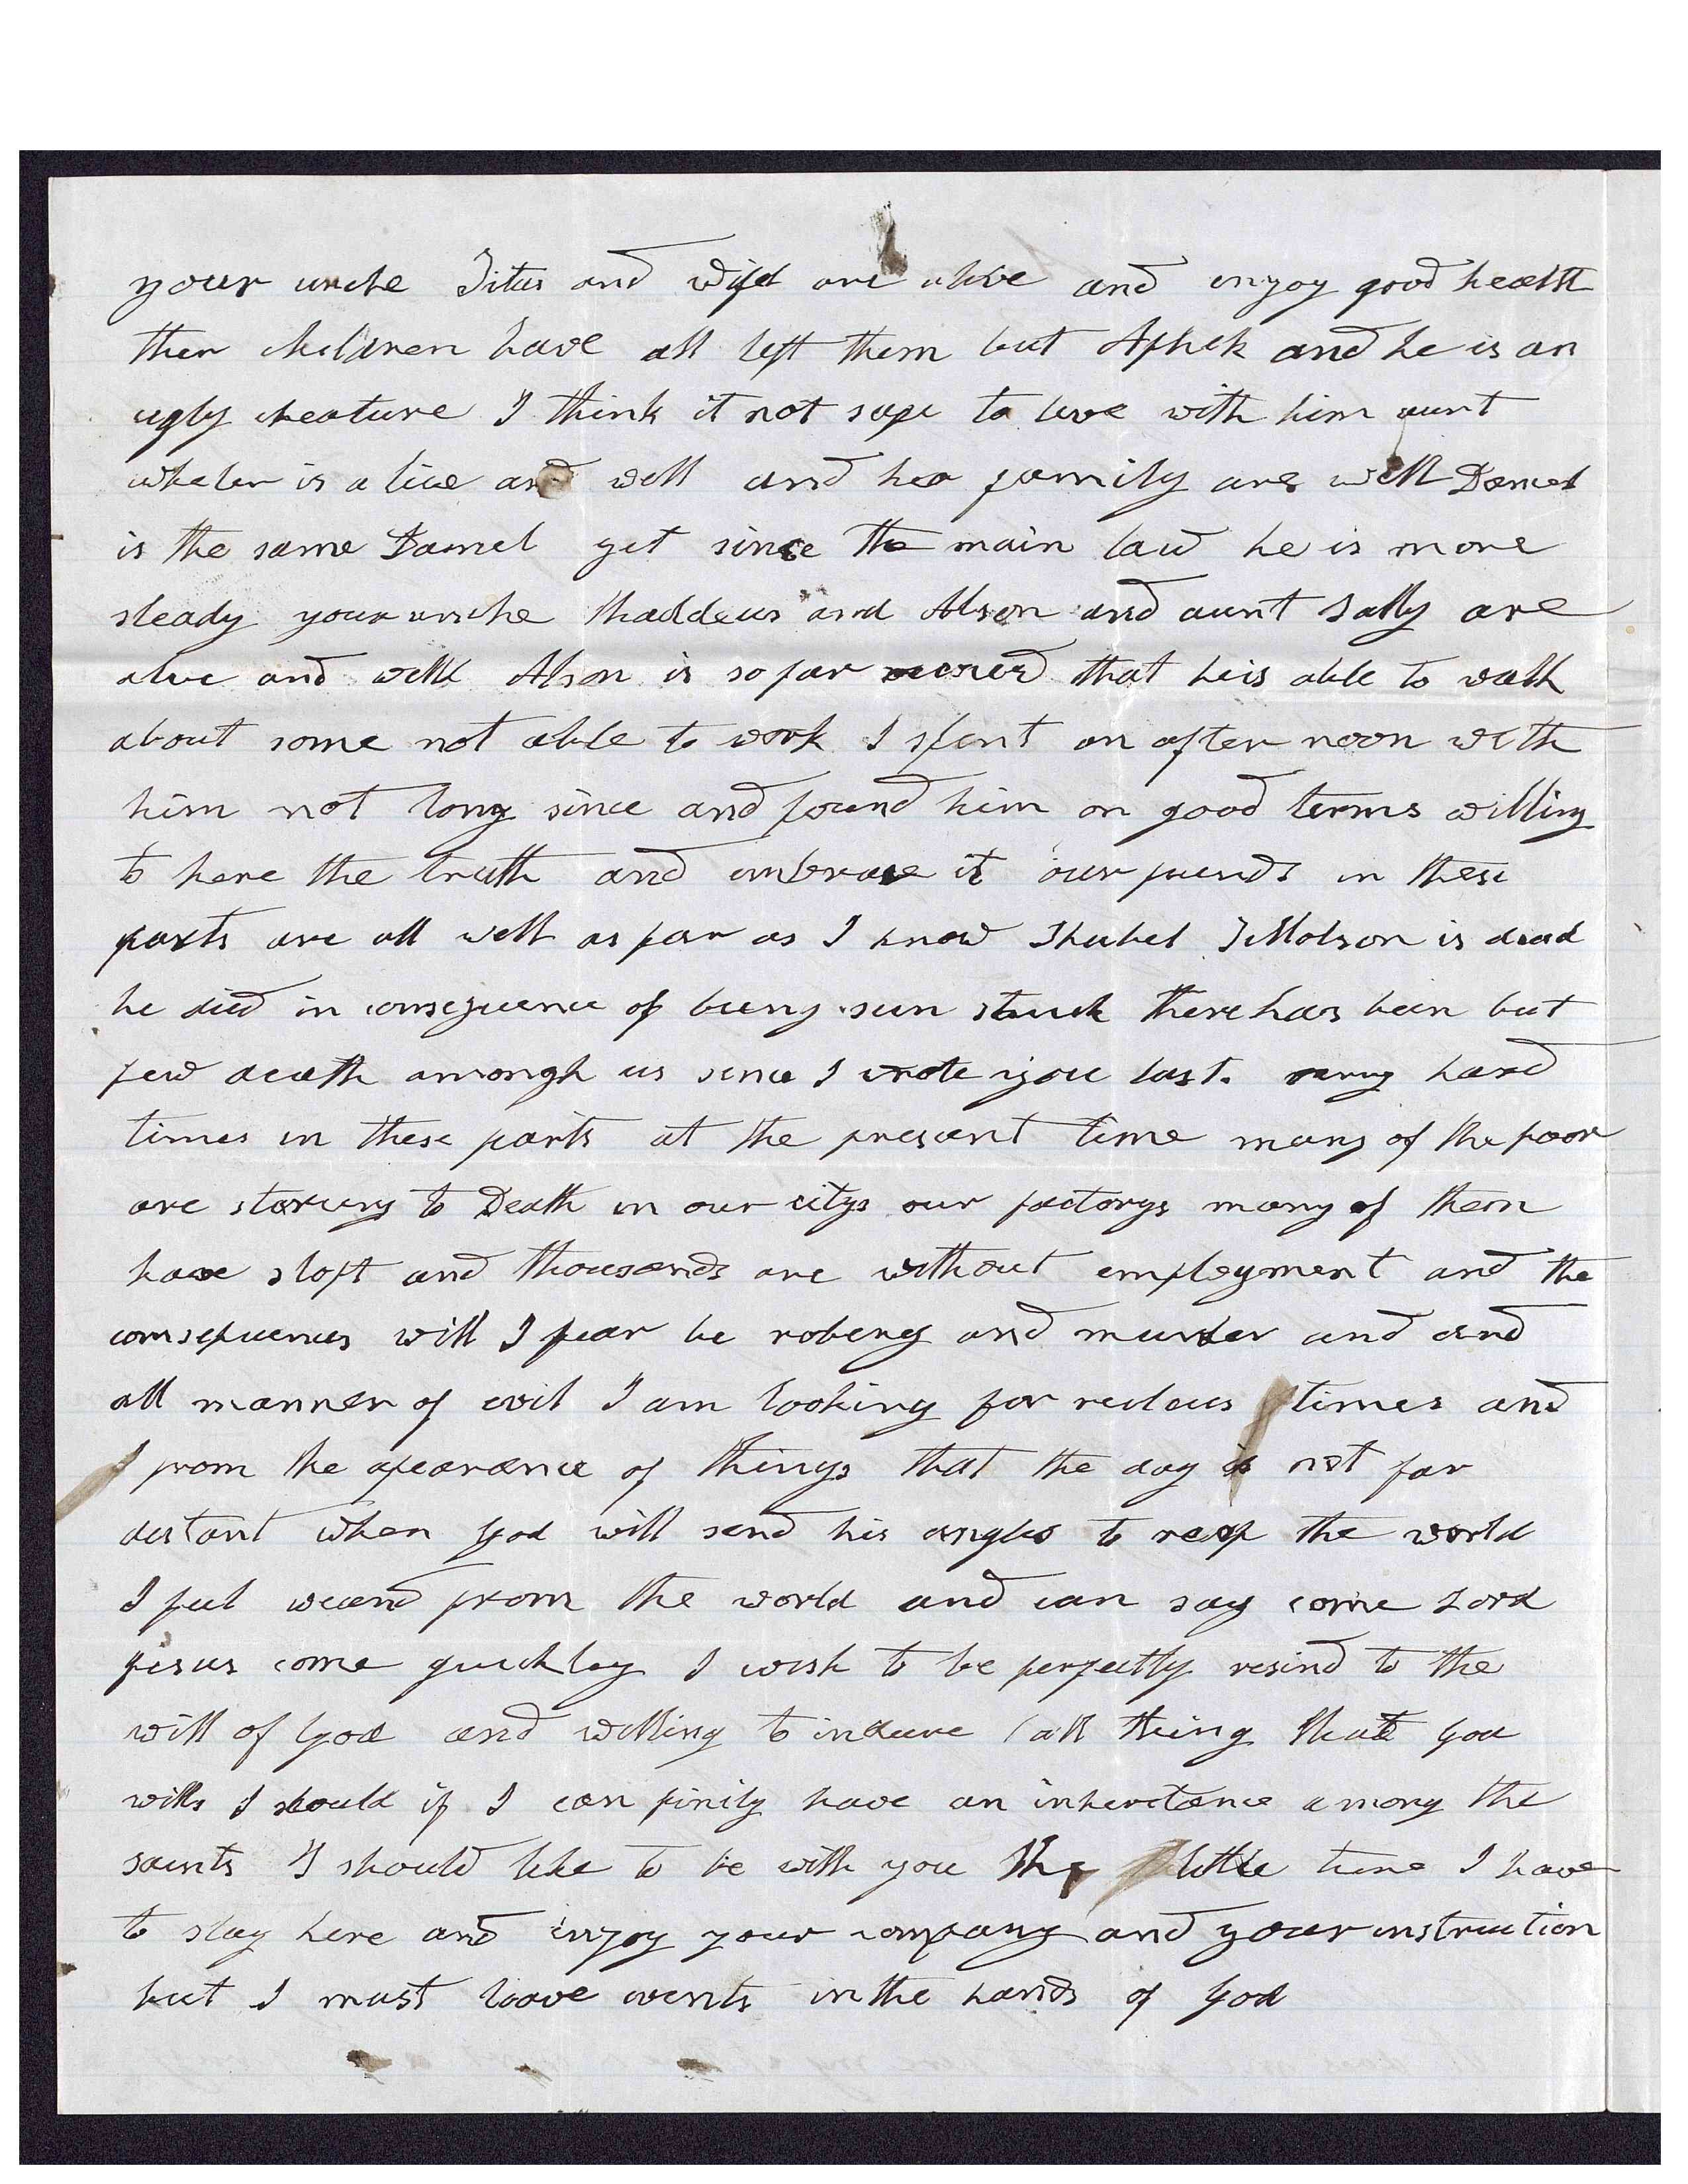 your uncle Titus and wife are alive and enjoy good health
ther children have all left them but Aphek and he is an
ugly creature I think it not safe to live with him aunt
wheler is a live and well and her family are well Daniel
is the same Daniel yet since the main law he is more
steady your uncle thaddeus and Alson and aunt Sally are
alive and well Alson is so far that he is able to walk
about some not able to work I spent an after noon with
him not long since and found him on good terms willing
to here the truth and embrace it our friends in these
parts are all well as far as I know Shubel Tillotson is dead
he died in consequence of being sun stuck there has bein but
few death amongh us since I wrote you last. very hard
times in these parts at the present time many of the poor
are starving to Death in our citys our factorys many of them
have stopt and thousands are without employment and the
consequences will I fear be robery and murder and and
all manner of evil I am looking for times and
I from the apearance of things that the day is not far
distant when god will send his angles to reap the world
I feel weand from the world and can say come Lord
jesus come quickley I wish to be perfectly resind to the
will of god and willing to indure all thing that god
wills I should if I can finily have an inheritance among the
saints I should like to be with you the little time I have
to stay here and injoy your company and your instruction
but I must leave events in the hands of god